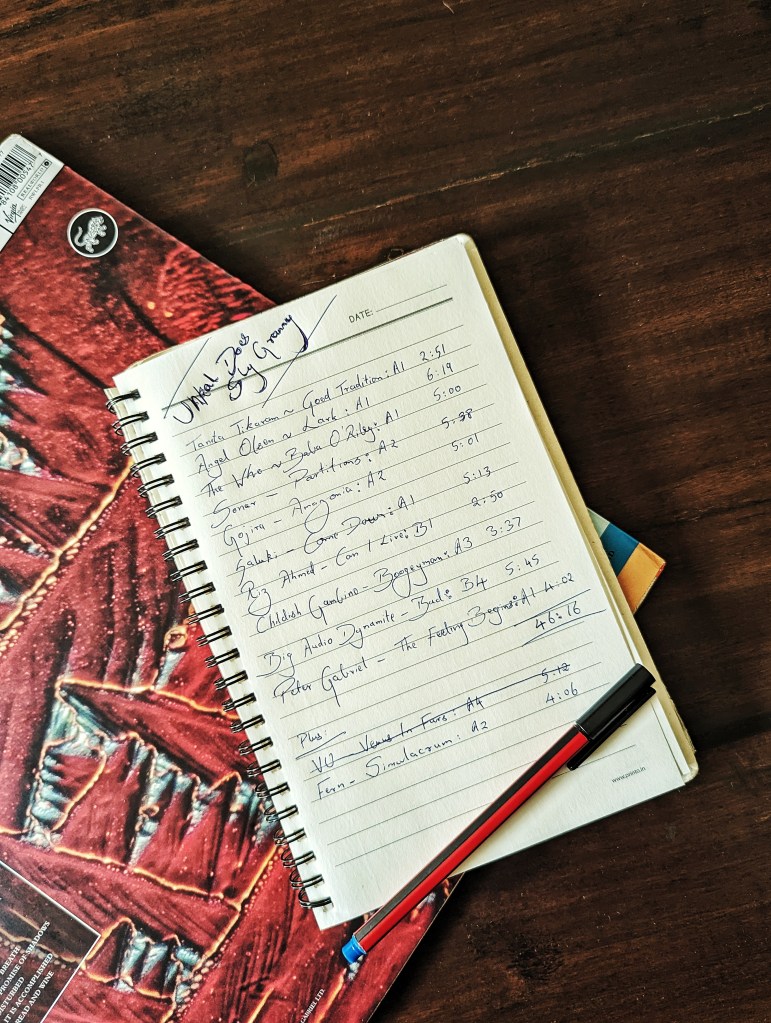 84108 00547
Virgin
REALWORLD
DATE:
Does
My Granny
Tanita Tikaram ~ Good Tradition: A1 2:51
Angel Olsen ~ Lark: A1 6:19
The Who ~ Baba O'Riley: A1 5:00
Sonar - Partitions: A2 5:38
Gojira - Amazonia: A2 5:01
Saluki - Come Down: A1 5:13
Riz Ahmed - Can I Live: B1 2:50
Childish Gambino - Boogeyman: A3 3:37
Big Audio Dynamite - Bad: B4 5:45
Peter Gabriel - The Feeling Begins: A1 4:02
46:16
Plus:
VU - Venus In Furs: A4 5:12
Fern - Simulacrum: A2 4:06
www.printo.in
BREATHE
PROMISE OF SHADOWS
DISTURBED
IT IS ACCOMPLISHED
BREAD AND WINE
GABRIEL LTD.